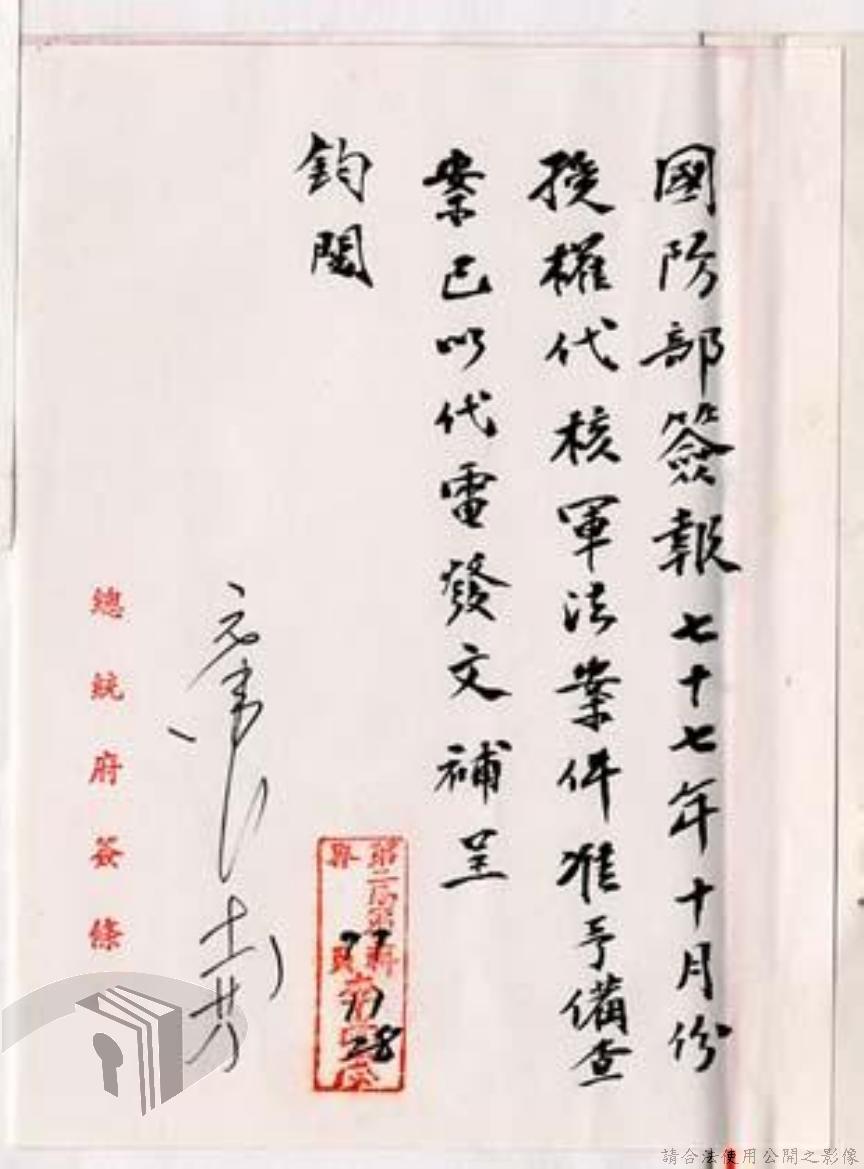 國防部簽報七十七年十月份
授權代核軍法案件准予備查
案已以代電發文補呈
鈞閱
77
11
28
總統府簽條
請合法使用公開之影像